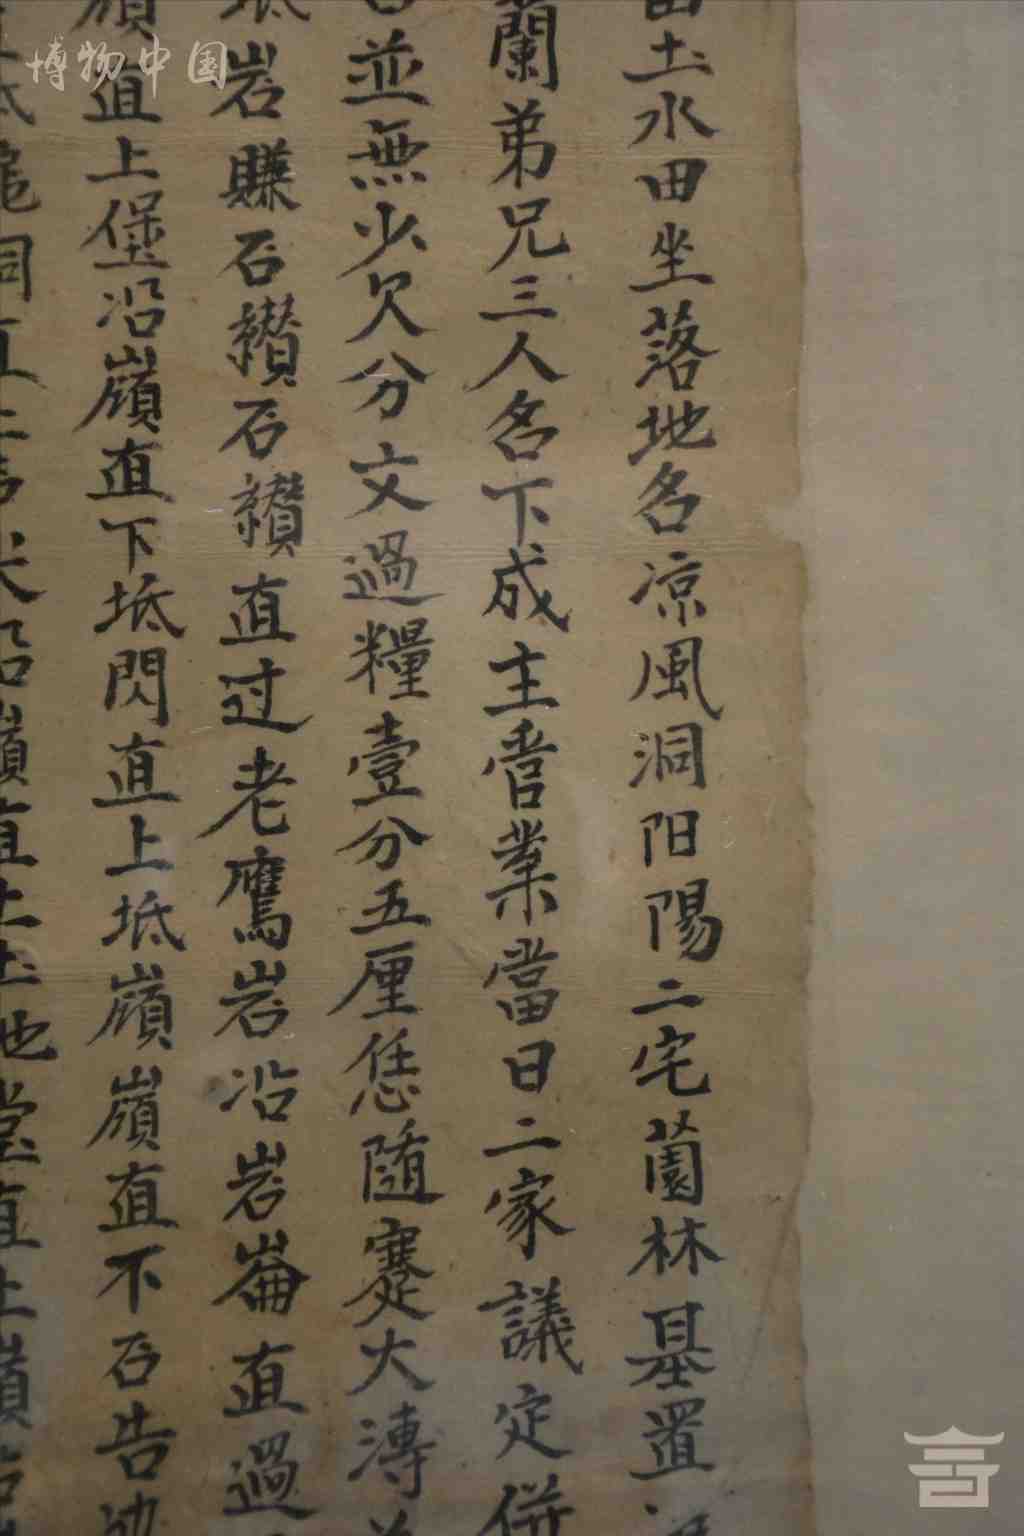 土水田坐落地名凉風洞阳陽二宅薗林基置
蘭弟兄三人名下成主管業當日二家議定併
並無少欠分文過糧壹分五厘恁随蹇大溥
岩賺石纘石纘直过老鷹岩沿岩崙直過
嶺直上堡沿嶺直下坻閃直上坻嶺嶺直不石告
洞直上
嶺直上土地堂直上嶺
博物中国